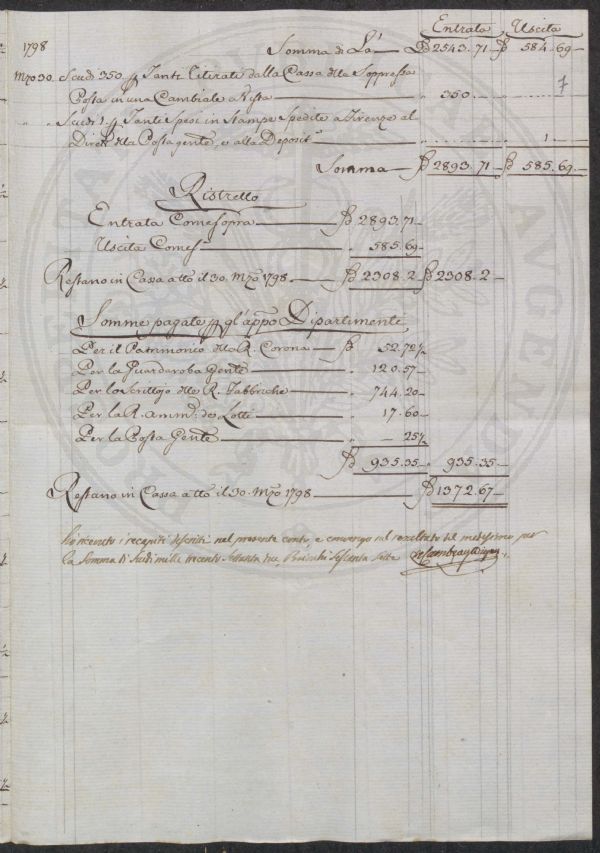 Entrata Uscita
1798 Somma di Là 2543.71 584.69
Mzo 30. Scudi 350. Tanti tirati dalla Cassa della Soppressa
Posta in una Cambiale a Vista 350
" " Scudi 1. Tanti spesi in Stampe spedite a Firenze al
Dirett. della Posta Gente, e alla Deposit. 1
Somma 2893.71 585.69
Ristretto
Entrata Come sopra 2893.71
Uscita Comes 585.69
Restano in Cassa a tto il 30. Mzo 1798 2308.2 2308.2
Somme pagate gl'appo Dipartimenti
Per il Patrimonio della R. Corona 52.72½
Per la Guardaroba Gente 120.57
Per lo Scrittojo delle R. Fabbriche 744.20
Per la R. Ammne de Lotti 17.60
Per la Posta Gente 25½
935.35 935.35
Restano in Cassa a tto il 30. Mzo 1798 1372.67
Ho ricevuto i recapiti descritti nel presente conto, e convengo nel rezultato del medesimo per
la Somma di Scudi mille trecento settanta due, Baiocchi sessanta sette